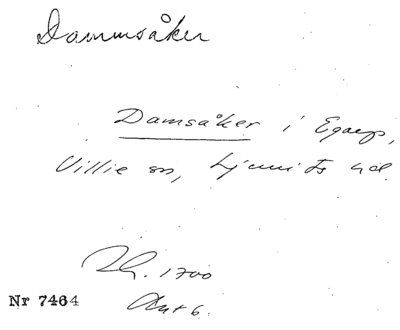 Dammsåker
Damsåker i Egarp,
Villie sn, Ljunits hd.
1700
Nr 7464